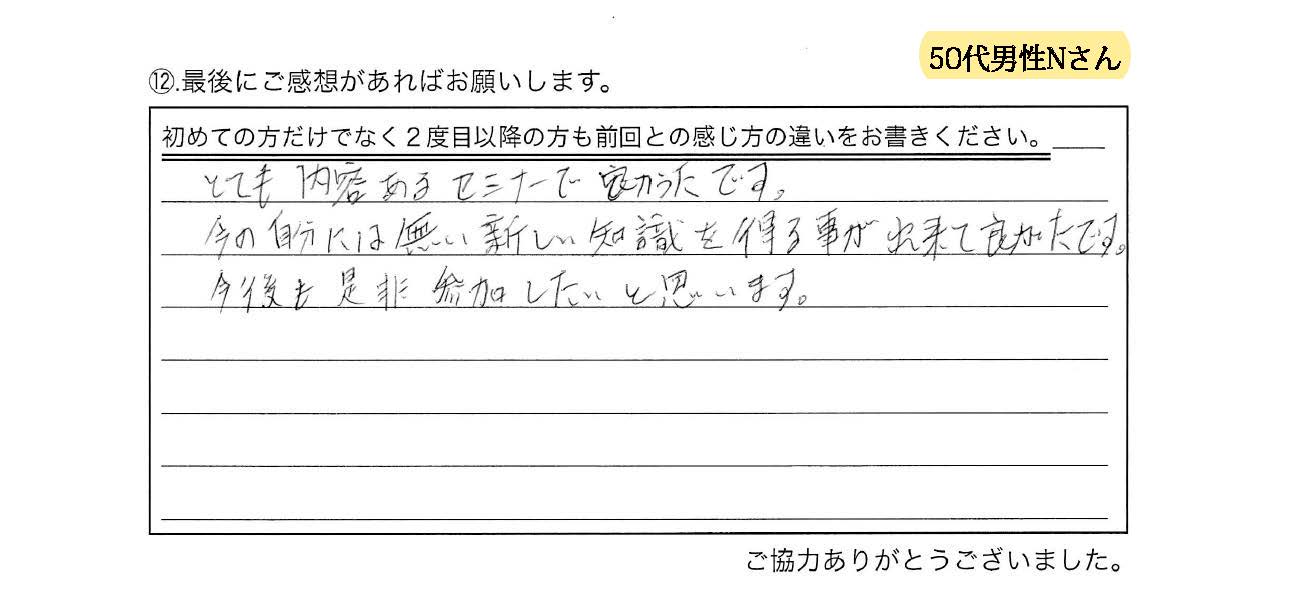 50代男性Nさん
⑫.最後にご感想があればお願いします。
初めての方だけでなく２度目以降の方も前回との感じ方の違いをお書きください。
とても内容あるセミナーで良かったです。
今の自分には無い新しい知識を得る事が出来て良かったです。
今後も是非参加したいと思います。
ご協力ありがとうございました。